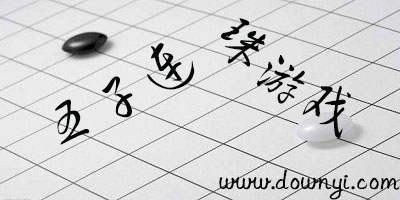 五子连珠游戏
www.downyi.com